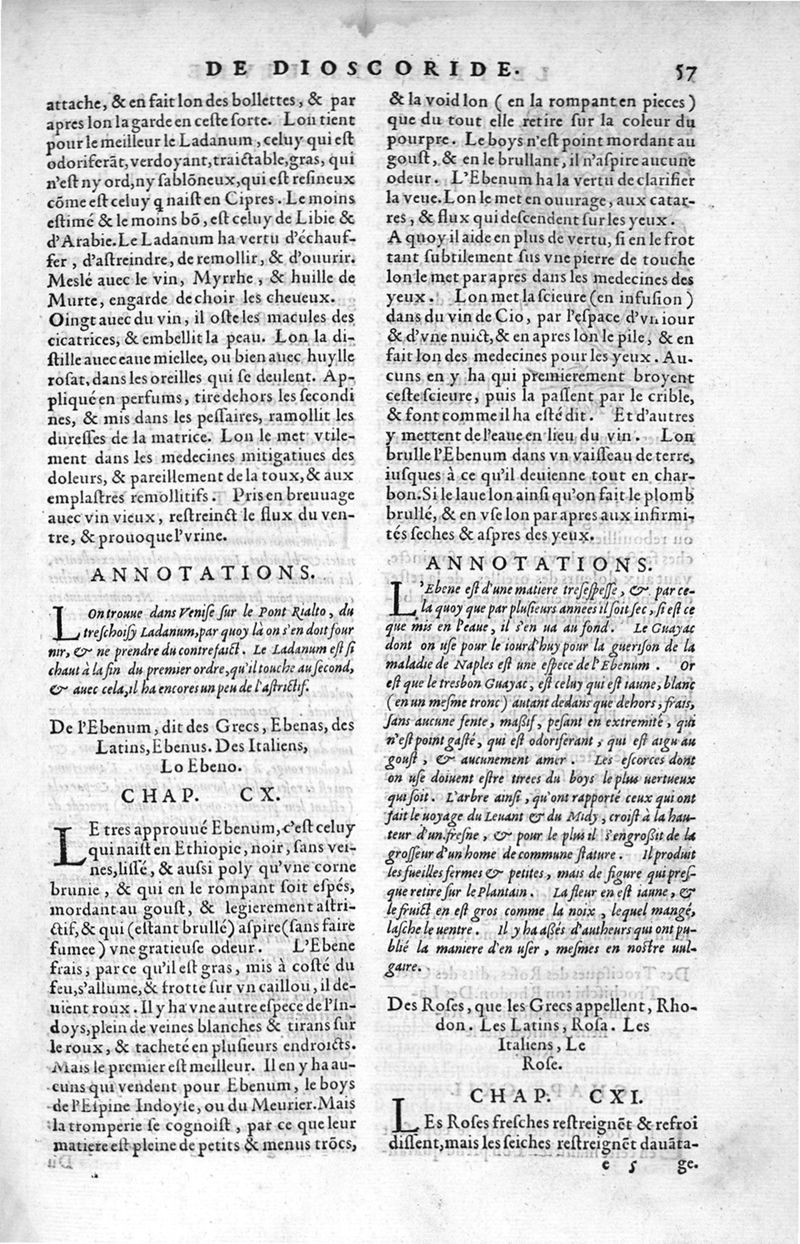 DE DIOSCORIDE. 57
attache, & en fait lon des bollettes, & par
apres lon la garde en ceſte ſorte. Lon tient
pour le meilleur le Ladanum, celuy qui eſt
odoriferãt, verdoyant, traictable, gras, qui
n'eſt ny ord, ny ſablõneux, qui eſt reſineux
cõme eſt celuy q naiſt en Cipres. Le moins
eſtimé & le moins bõ, eſt celuy de Libie &
d'Arabie. Le Ladanum ha vertu d'échauf-
fer, d'aſtreindre, de remollir, & d'ouurir.
Meslé auec le vin, Myrrhe, & huille de
Murte, engarde de choir les cheueux.
Oingt auec du vin, il oſte les macules des
cicatrices, & embellit la peau. Lon la di-
ſtille auec eaue miellee, ou bien auec huylle
roſat, dans les oreilles qui ſe deulent. Ap-
pliqué en perfums, tire dehors les ſecondi
nes, & mis dans les peſſaires, ramollit les
dureſſes de la matrice. Lon le met vtile-
ment dans les medecines mitigatiues des
doleurs, & pareillement de la toux, & aux
emplaſtres remollitifs. Pris en breuuage
auec vin vieux, reſtreinct le flux du ven-
tre, & prouoque l'vrine.
ANNOTATIONS.
LOn trouue dans Veniſe ſur le Pont Rialto, du
treſchoiſy Ladanum, par quoy là on s'en doit four
nir, & ne prendre du contrefaict. Le Ladanum eſt ſi
chaut à la fin du premier ordre, qu'il touche au ſecond,
& auec cela, il ha encores un peu de l'aſtrictif.
De l'Ebenum, dit des Grecs, Ebenas, des
Latins, Ebenus. Des Italiens,
Lo Ebeno.
CHAP. CX.
LE tres approuué Ebenum, c'eſt celuy
qui naiſt en Ethiopie, noir, ſans vei-
nes, liſſé, & auſſi poly qu'vne corne
brunie, & qui en le rompant ſoit eſpés,
mordant au gouſt, & legierement aſtri-
ctif, & qui (eſtant brullé) aſpire (ſans faire
fumee) vne gratieuſe odeur. L'Ebene
frais, parce qu'il eſt gras, mis à coſté du
feu, s'allume, & frotte ſur vn caillou, il de-
uient roux. Il y ha vne autre eſpece de l'In-
doys, plein de veines blanches & tirans ſur
le roux, & tacheté en pluſieurs endroicts.
Mais le premier eſt meilleur. Il en y ha au-
cuns qui vendent pour Ebenum, le boys
de l'Eſpine Indoyſe, ou du Meurier. Mais
la tromperie ſe cognoiſt, par ce que leur
matiere eſt pleine de petits & menus trõcs,
& la void lon (en la rompant en pieces)
que du tout elle retire ſur la coleur du
pourpre. Le boys n'eſt point mordant au
gouſt, & en le brullant, il n'aſpire aucune
odeur. L'Ebenum ha la vertu de clarifier
la veue. Lon le met en ouurage, aux catar-
res, & flux qui deſcendent ſur les yeux.
A quoy il aide en plus de vertu, ſi en le frot
tant ſubtilement ſus vne pierre de touche
lon le met par apres dans les medecines des
yeux. Lon met la ſcieure (en infuſion)
dans du vin de Cio, par l'eſpace d'vn iour
& d'vne nuict, & en apres lon le pile, & en
fait lon des medecines pour les yeux. Au-
cuns en y ha qui premierement broyent
ceſte ſcieure, puis la paſſent par le crible,
& font comme il ha eſté dit. Et d'autres
y mettent de l'eaue en lieu du vin. Lon
brulle l'Ebenum dans vn vaiſſeau de terre,
iuſques à ce qu'il deuienne tout en char-
bon. Si le laue lon ainſi qu'on fait le plomb
brullé, & en vſe lon par apres aux infirmi-
tés ſeches & aſpres des yeux.
ANNOTATIONS.
L'Ebene eſt d'une matiere treſeſpeſſe, & par ce-
la quoy que par pluſieurs années il ſoit ſec, ſi eſt ce
que mis en l'eaue, il s'en ua au fond. Le Guayac
dont on uſe pour le iourd'huy pour la gueriſon de la
maladie de Naples eſt une eſpece de l'Ebenum. Or
eſt que le tresbon Guayac, eſt celuy qui eſt iaune, blanc
(en un meſme tronc) autant dedans que dehors, frais,
ſans aucune fente, maſſif, peſant en extremité, qui
n'eſt point gaſté, qui eſt odoriferant, qui eſt aigu au
gouſt, & aucunement amer. Les eſcorces dont
on uſe doiuent eſtre tirees du boys le plus uertueux
qui ſoit. L'arbre ainſi, qu'ont rapporté ceux qui ont
fait le uoyage du Leuant & du Midy, croiſt à la hau-
teur d'un freſne, & pour le plus il s'engroſſit de la
groſſeur d'un home de commune ſtature. Il produit
les fueilles fermes & petites, mais de figure qui preſ-
que retire ſur le Plantain. La fleur en eſt iaune, &
le fruict en eſt gros comme la noix, lequel mangé,
laſche le uentre. Il y ha aßés d'autheurs qui ont pu-
blié la maniere d'en uſer, meſmes en noſtre uul-
gaire.
Des Roſes, que les Grecs appellent, Rho-
don. Les Latins, Roſa. Les
Italiens, Le
Roſe.
CHAP. CXI.
LEs Roſes freſches reſtreignẽt & refroi
diſſent, mais les ſeiches reſtreignẽt dauãta-
e 5 ge.